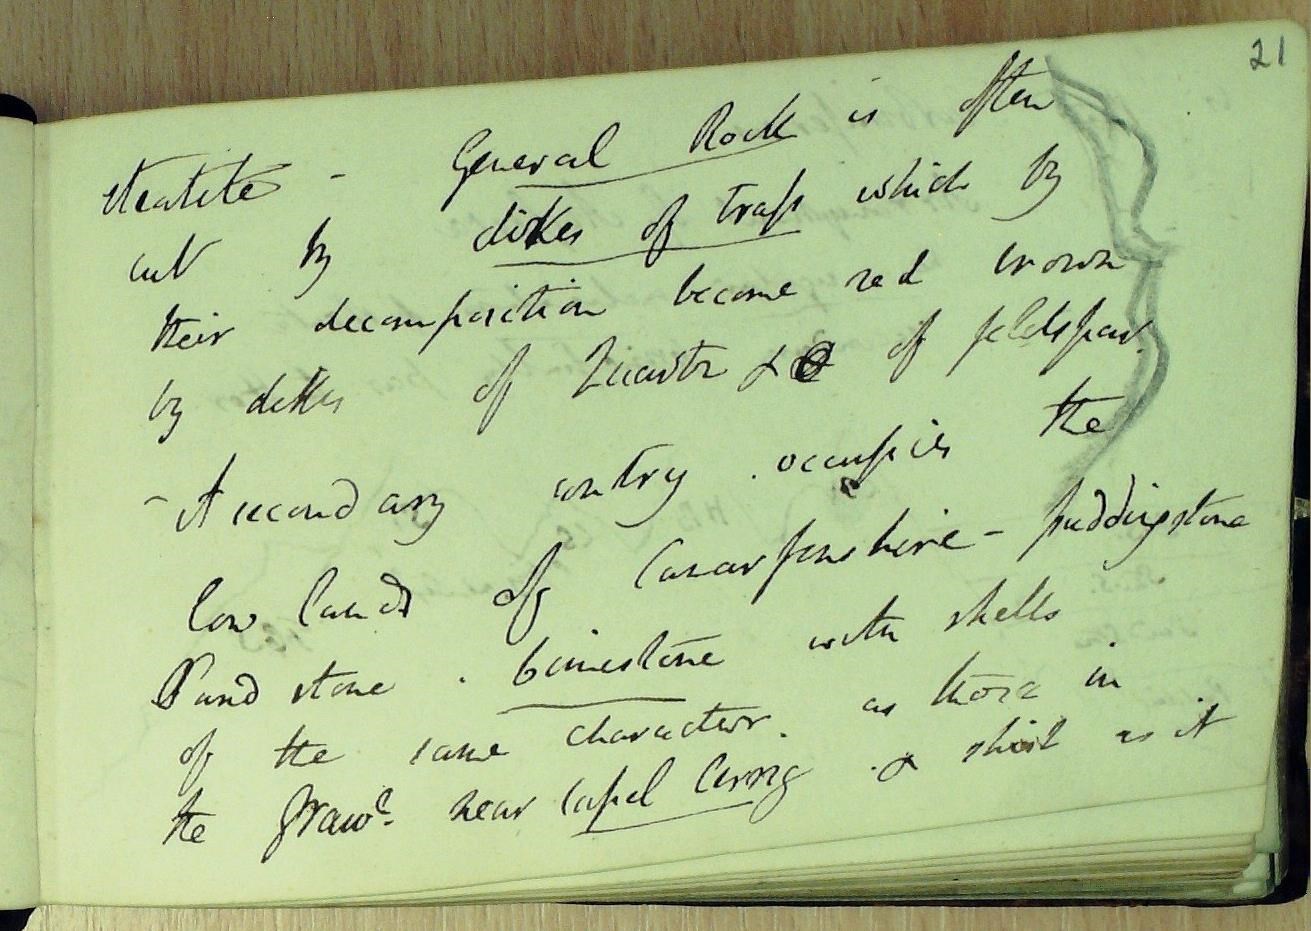 21
steatite - General Rock is often
cut by dikes of trap which by
their decomposition become red brown
by dikes of Quartz & of feldspar.
- A secondary contry occupies the
low lands of Canarfonshire - puddingstone
Sandstone. Limestone with shells
of the same character. as those in
the Grawe. near Capel Cerrig & shist as it